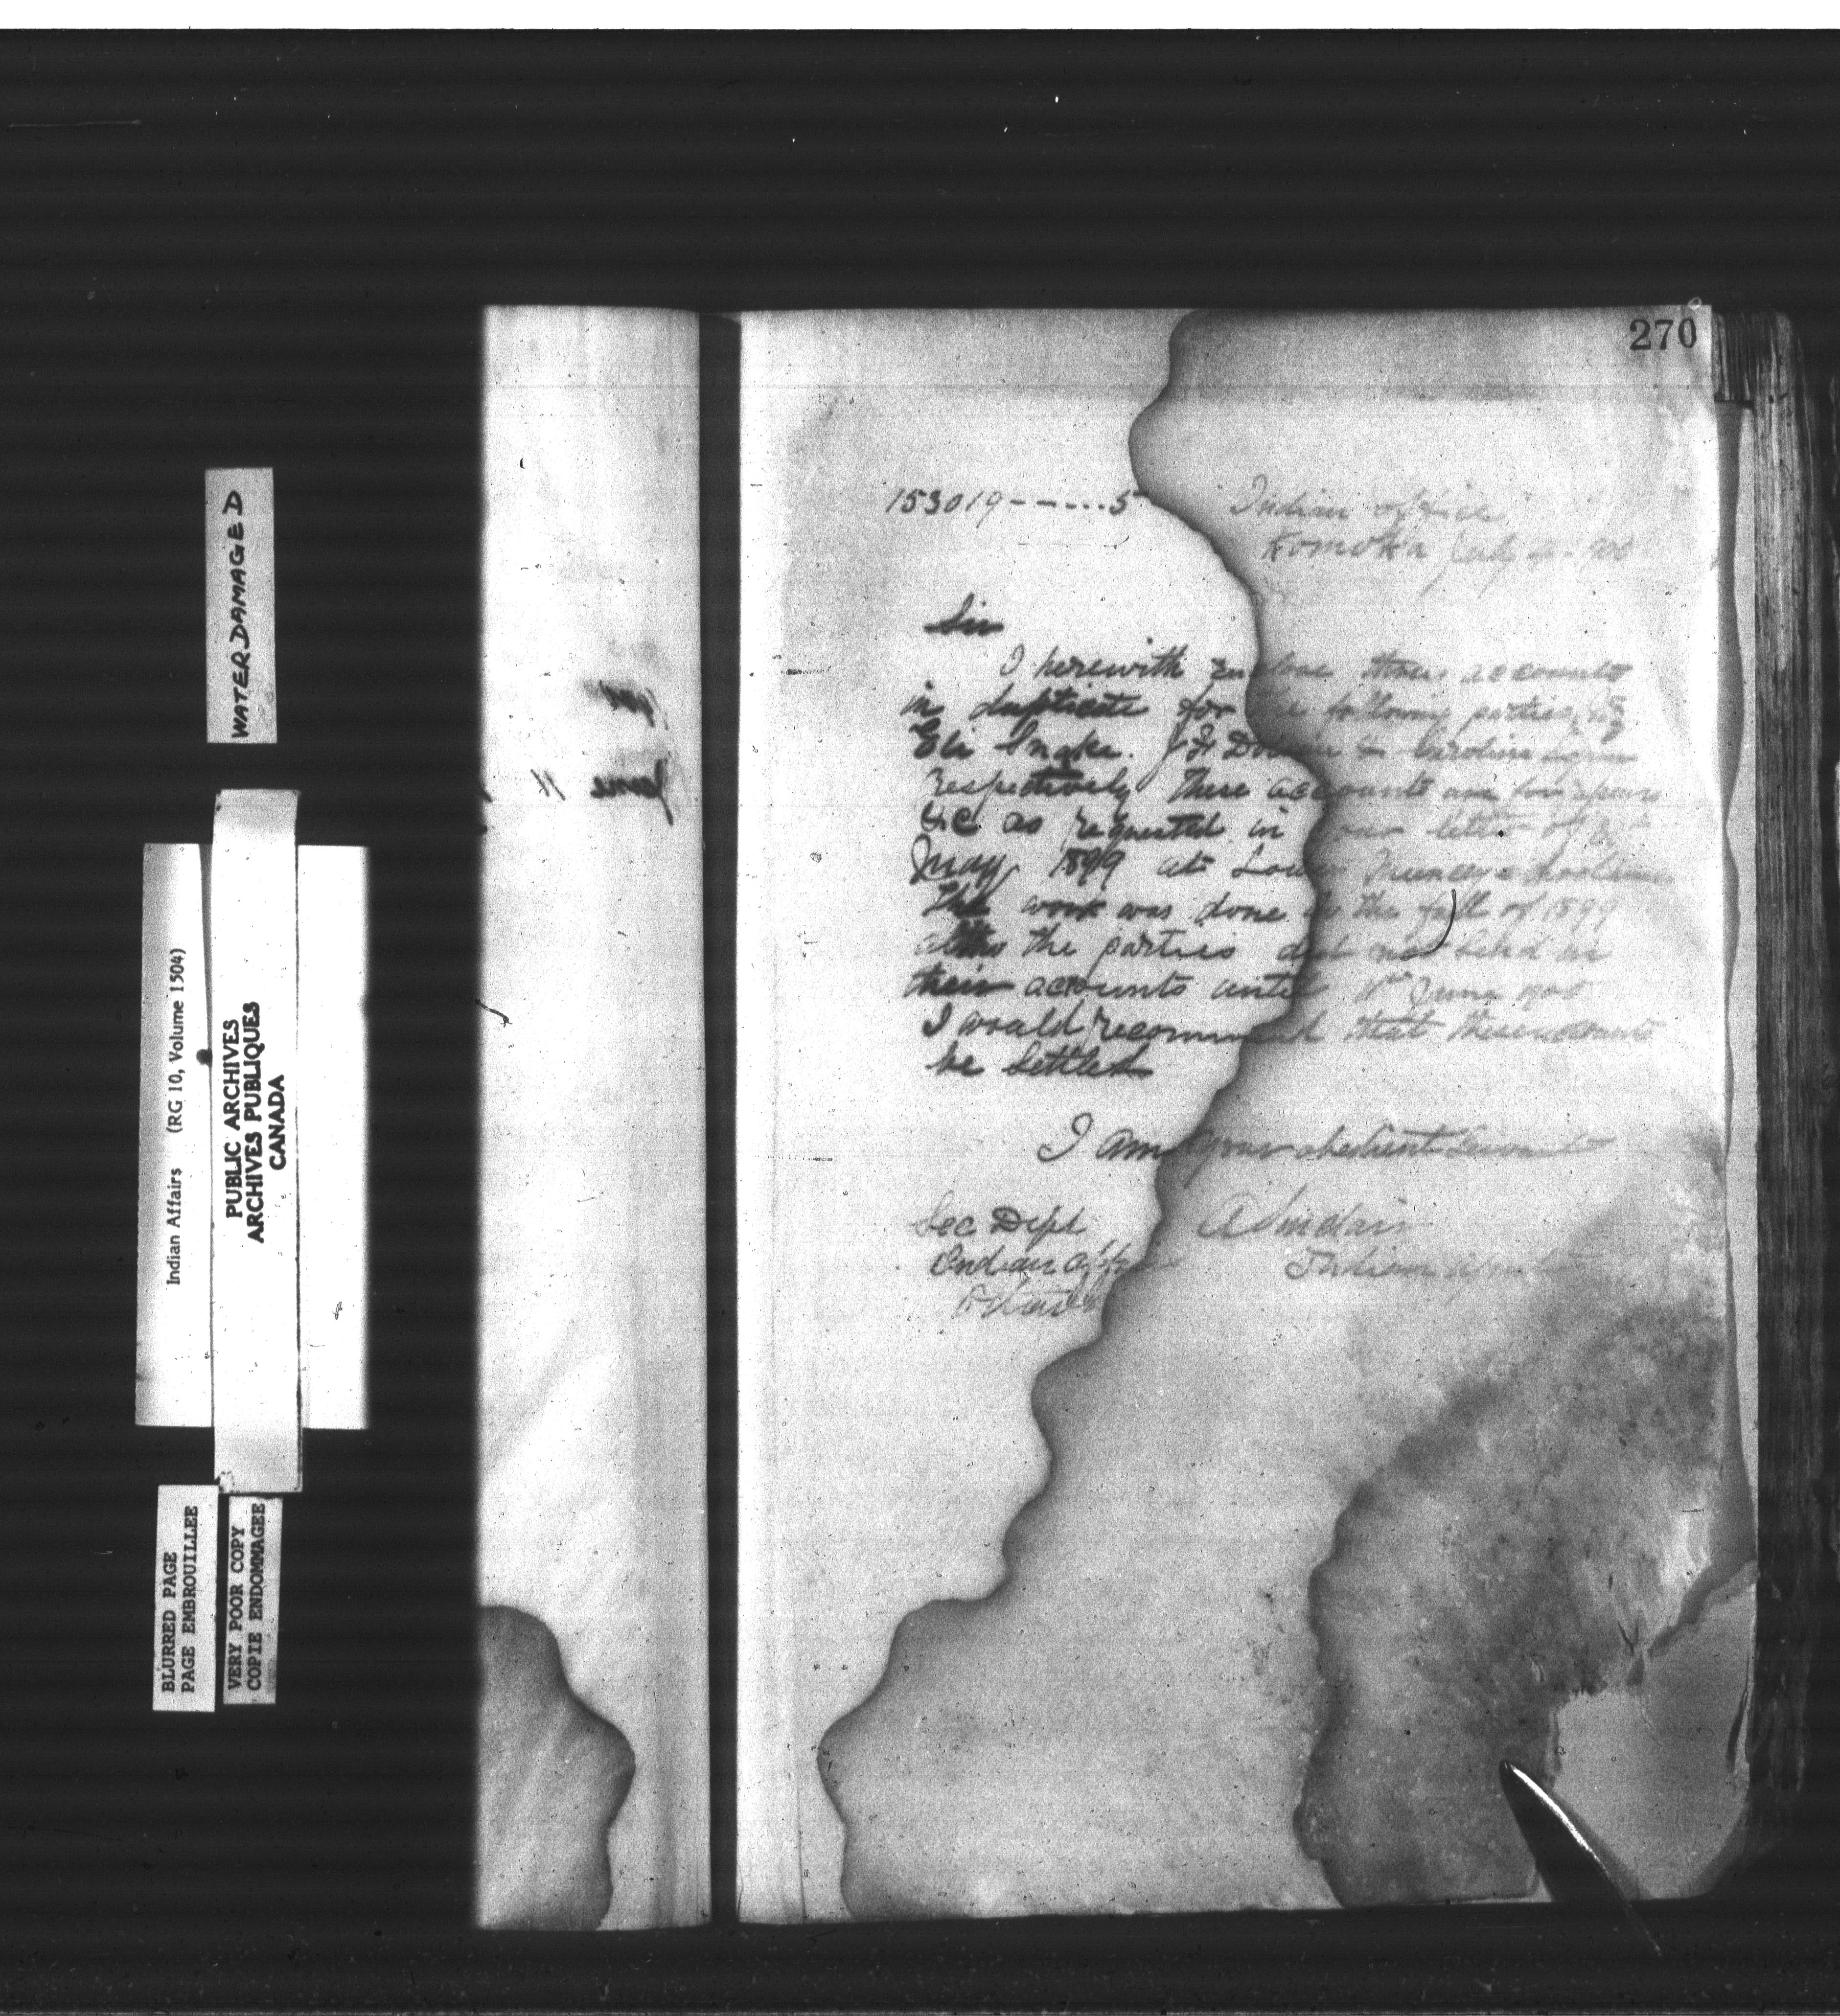 270
153019------5
Indian office
Komoka July 1900
Sir
I herewith enclose three accounts
in duplicate for the following parties
Eli Snake. & Caroline
respectively these accounts are for repairs
&c as requested in your letter of
May 1899 at Lower Muncey
The work was done in the fall of 1899
the parties did not send in
their accounts until June 1900
I would recommend that these accounts
be settled
I am your obedient Servant
Sec Dept
A Sinclair
Indian Aff
Indian Agent
Ottawa
June 11
WATER DAMAGED
Indian Affairs (RG 10, Volume 1504)
PUBLIC ARCHIVES
ARCHIVES PUBLIQUES
CANADA
BLURRED PAGE
PAGE EMBROUILLEE
VERY POOR COPY
COPIE ENDOMMAGEE